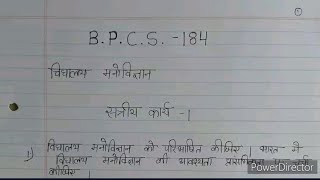 B.P.C.S. -184
विद्यालय मनोविज्ञान
सत्रीय कार्य -1
1) विद्यालय मनोविज्ञान को परिभाषित कीजिए । भारत में
विद्यालय मनोविज्ञान की
कीजिए ।
PowerDirector